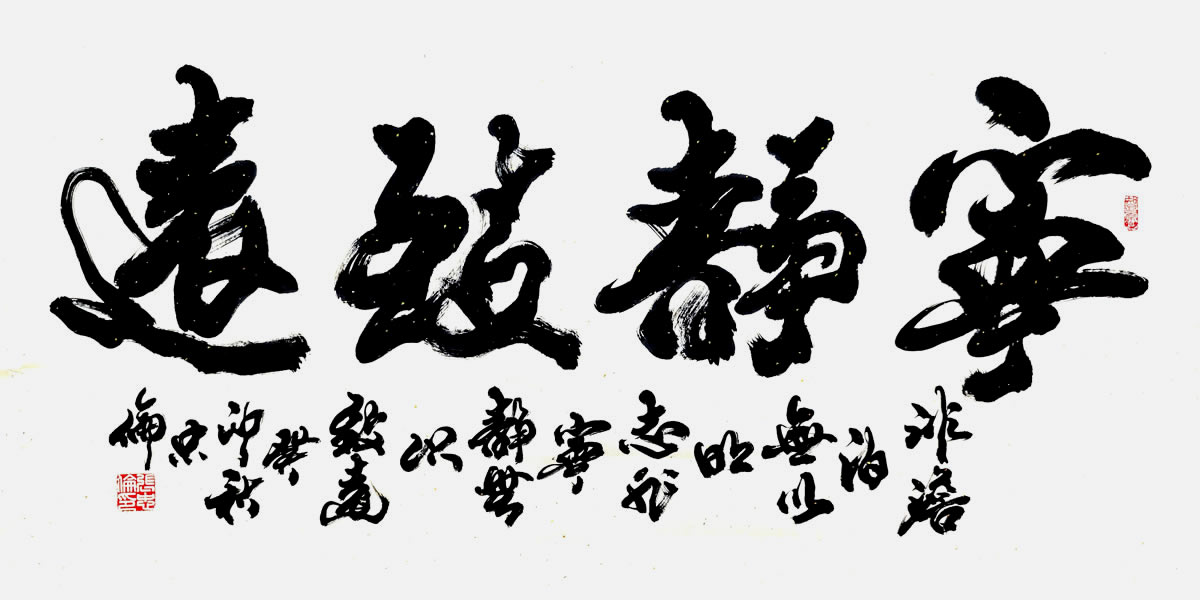 寧靜致遠
非澹泊無以明志非寧靜無以致遠癸卯秋忠倫
張忠倫印